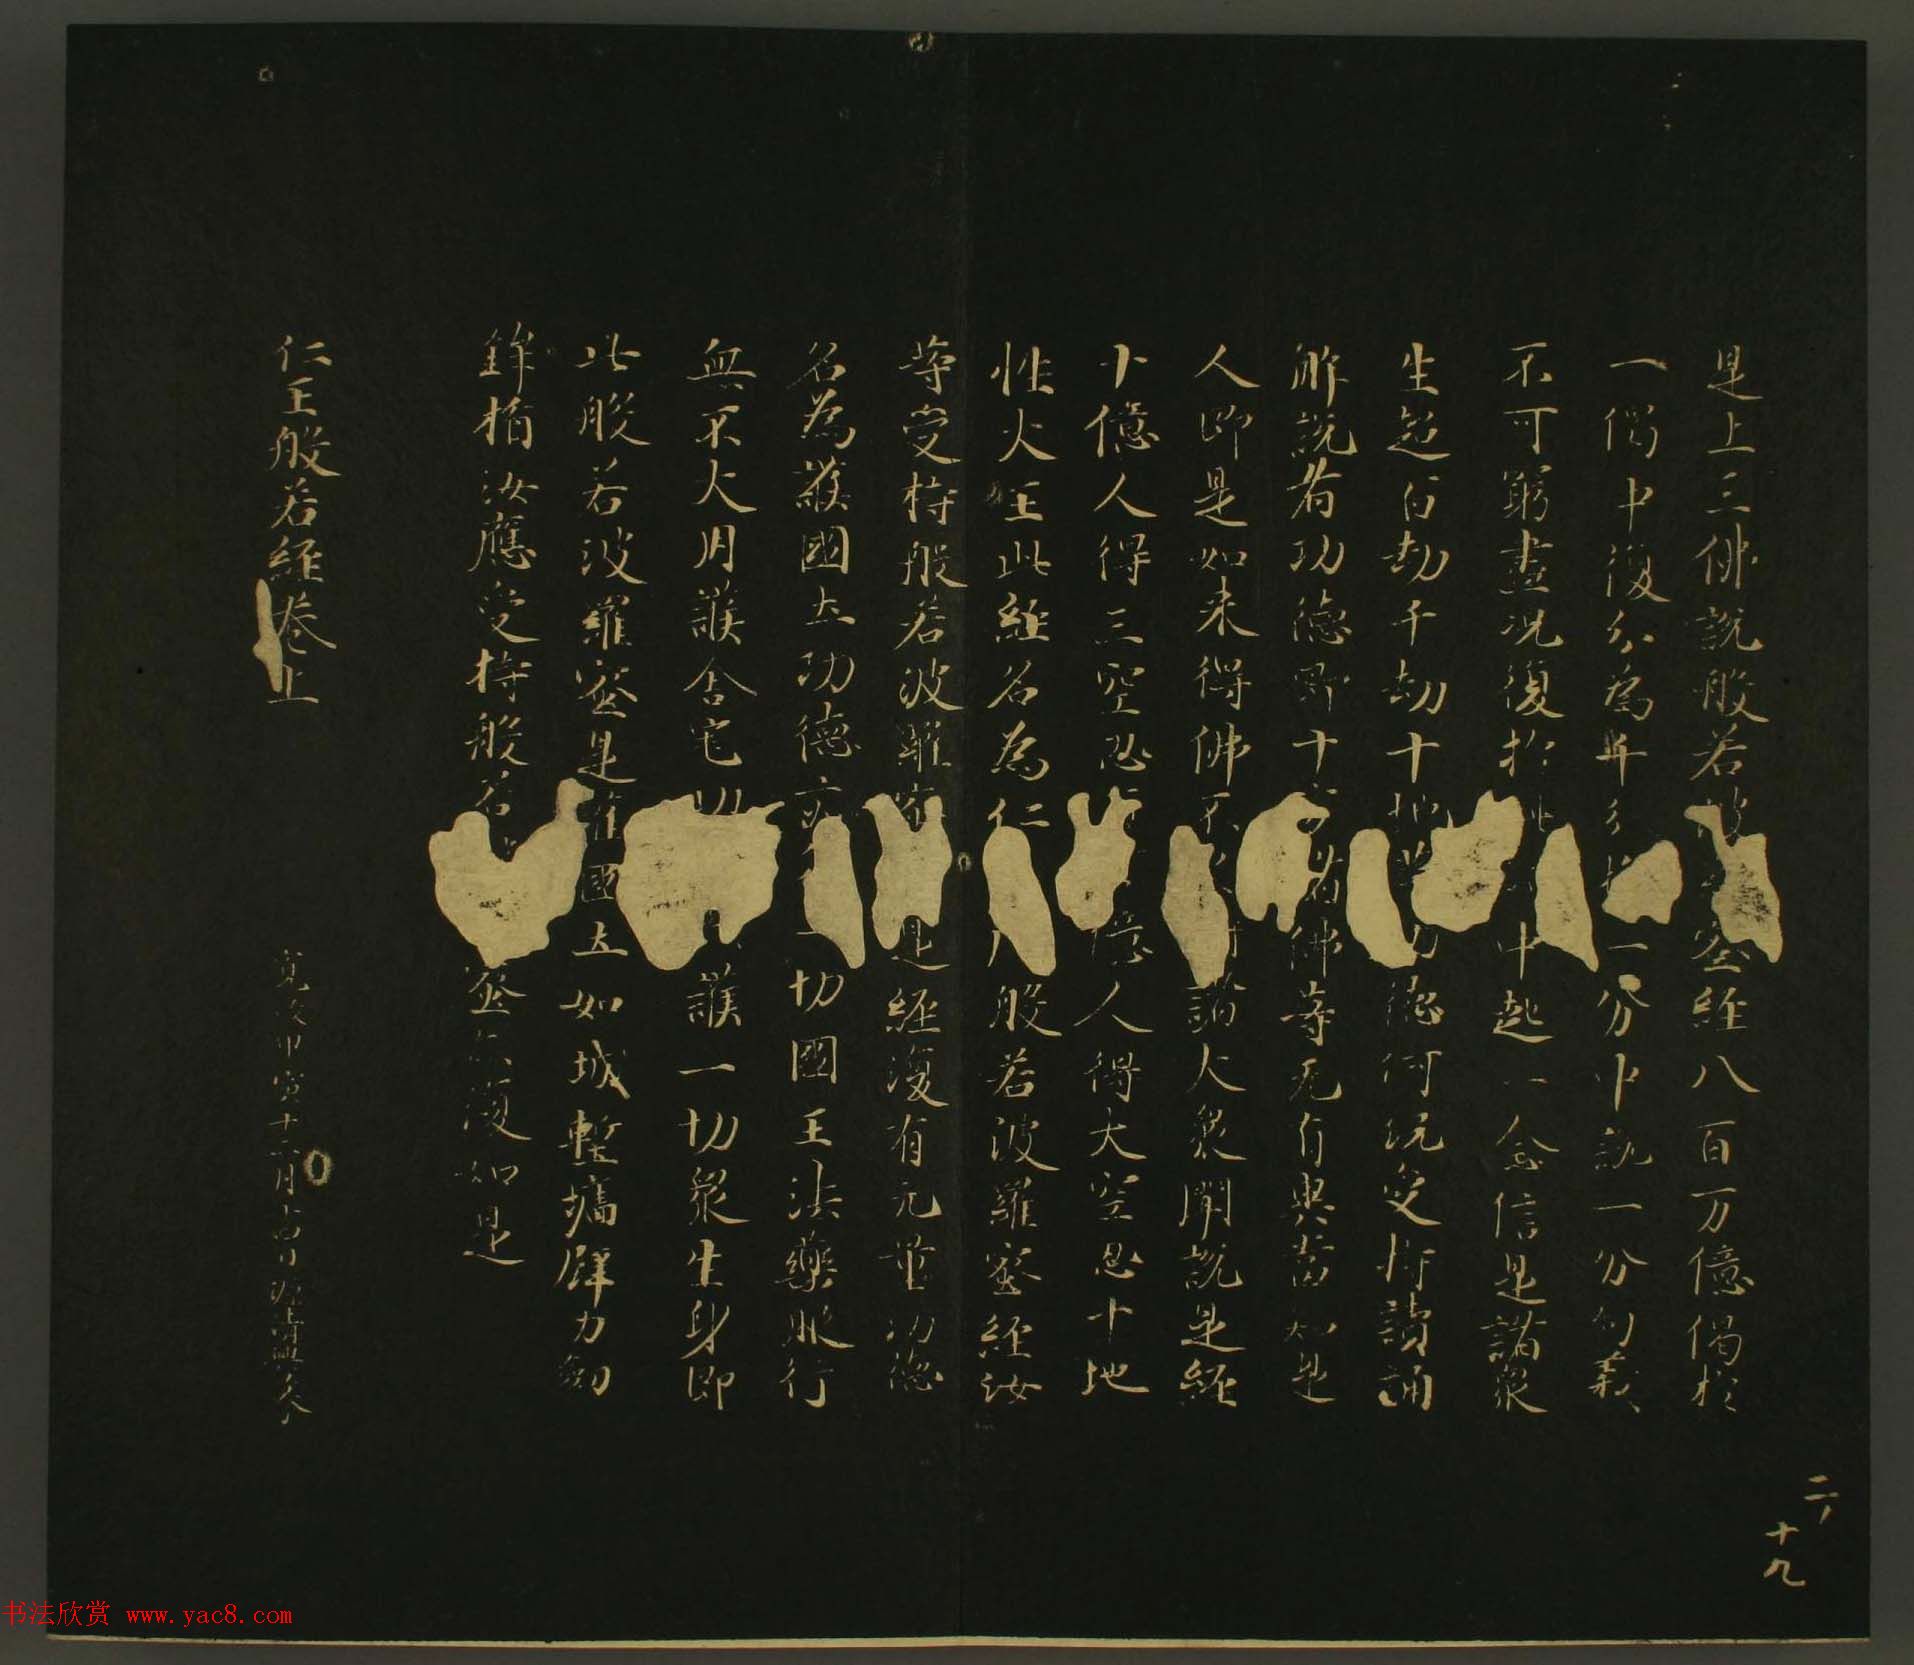 是上三佛說般若波蜜經八百万億偈於
一偈中復分為一分中說一分句義
不可窮盡況復於中起一念信是諸眾
生超百劫千劫十地功德何况受持讀誦
解說者功德即十諸佛等无有異當知是
人即是如来得佛不諸大眾聞說是經
十億人得三空忍億人得大空忍十地
性大王此經名為仁般若波羅蜜經汝
等受持般若波羅是經復有无量功德
名為護國土功德一切國王法藥服行
無不大用護舍宅護一切眾生身即
此般若波羅蜜是護國土如城塹墻壁刀劍
鉾楯汝應受持般若蜜亦復如是
仁王般若經卷上
寬治甲寅十二月
二ノ十九
书法欣赏 www.yac8.com